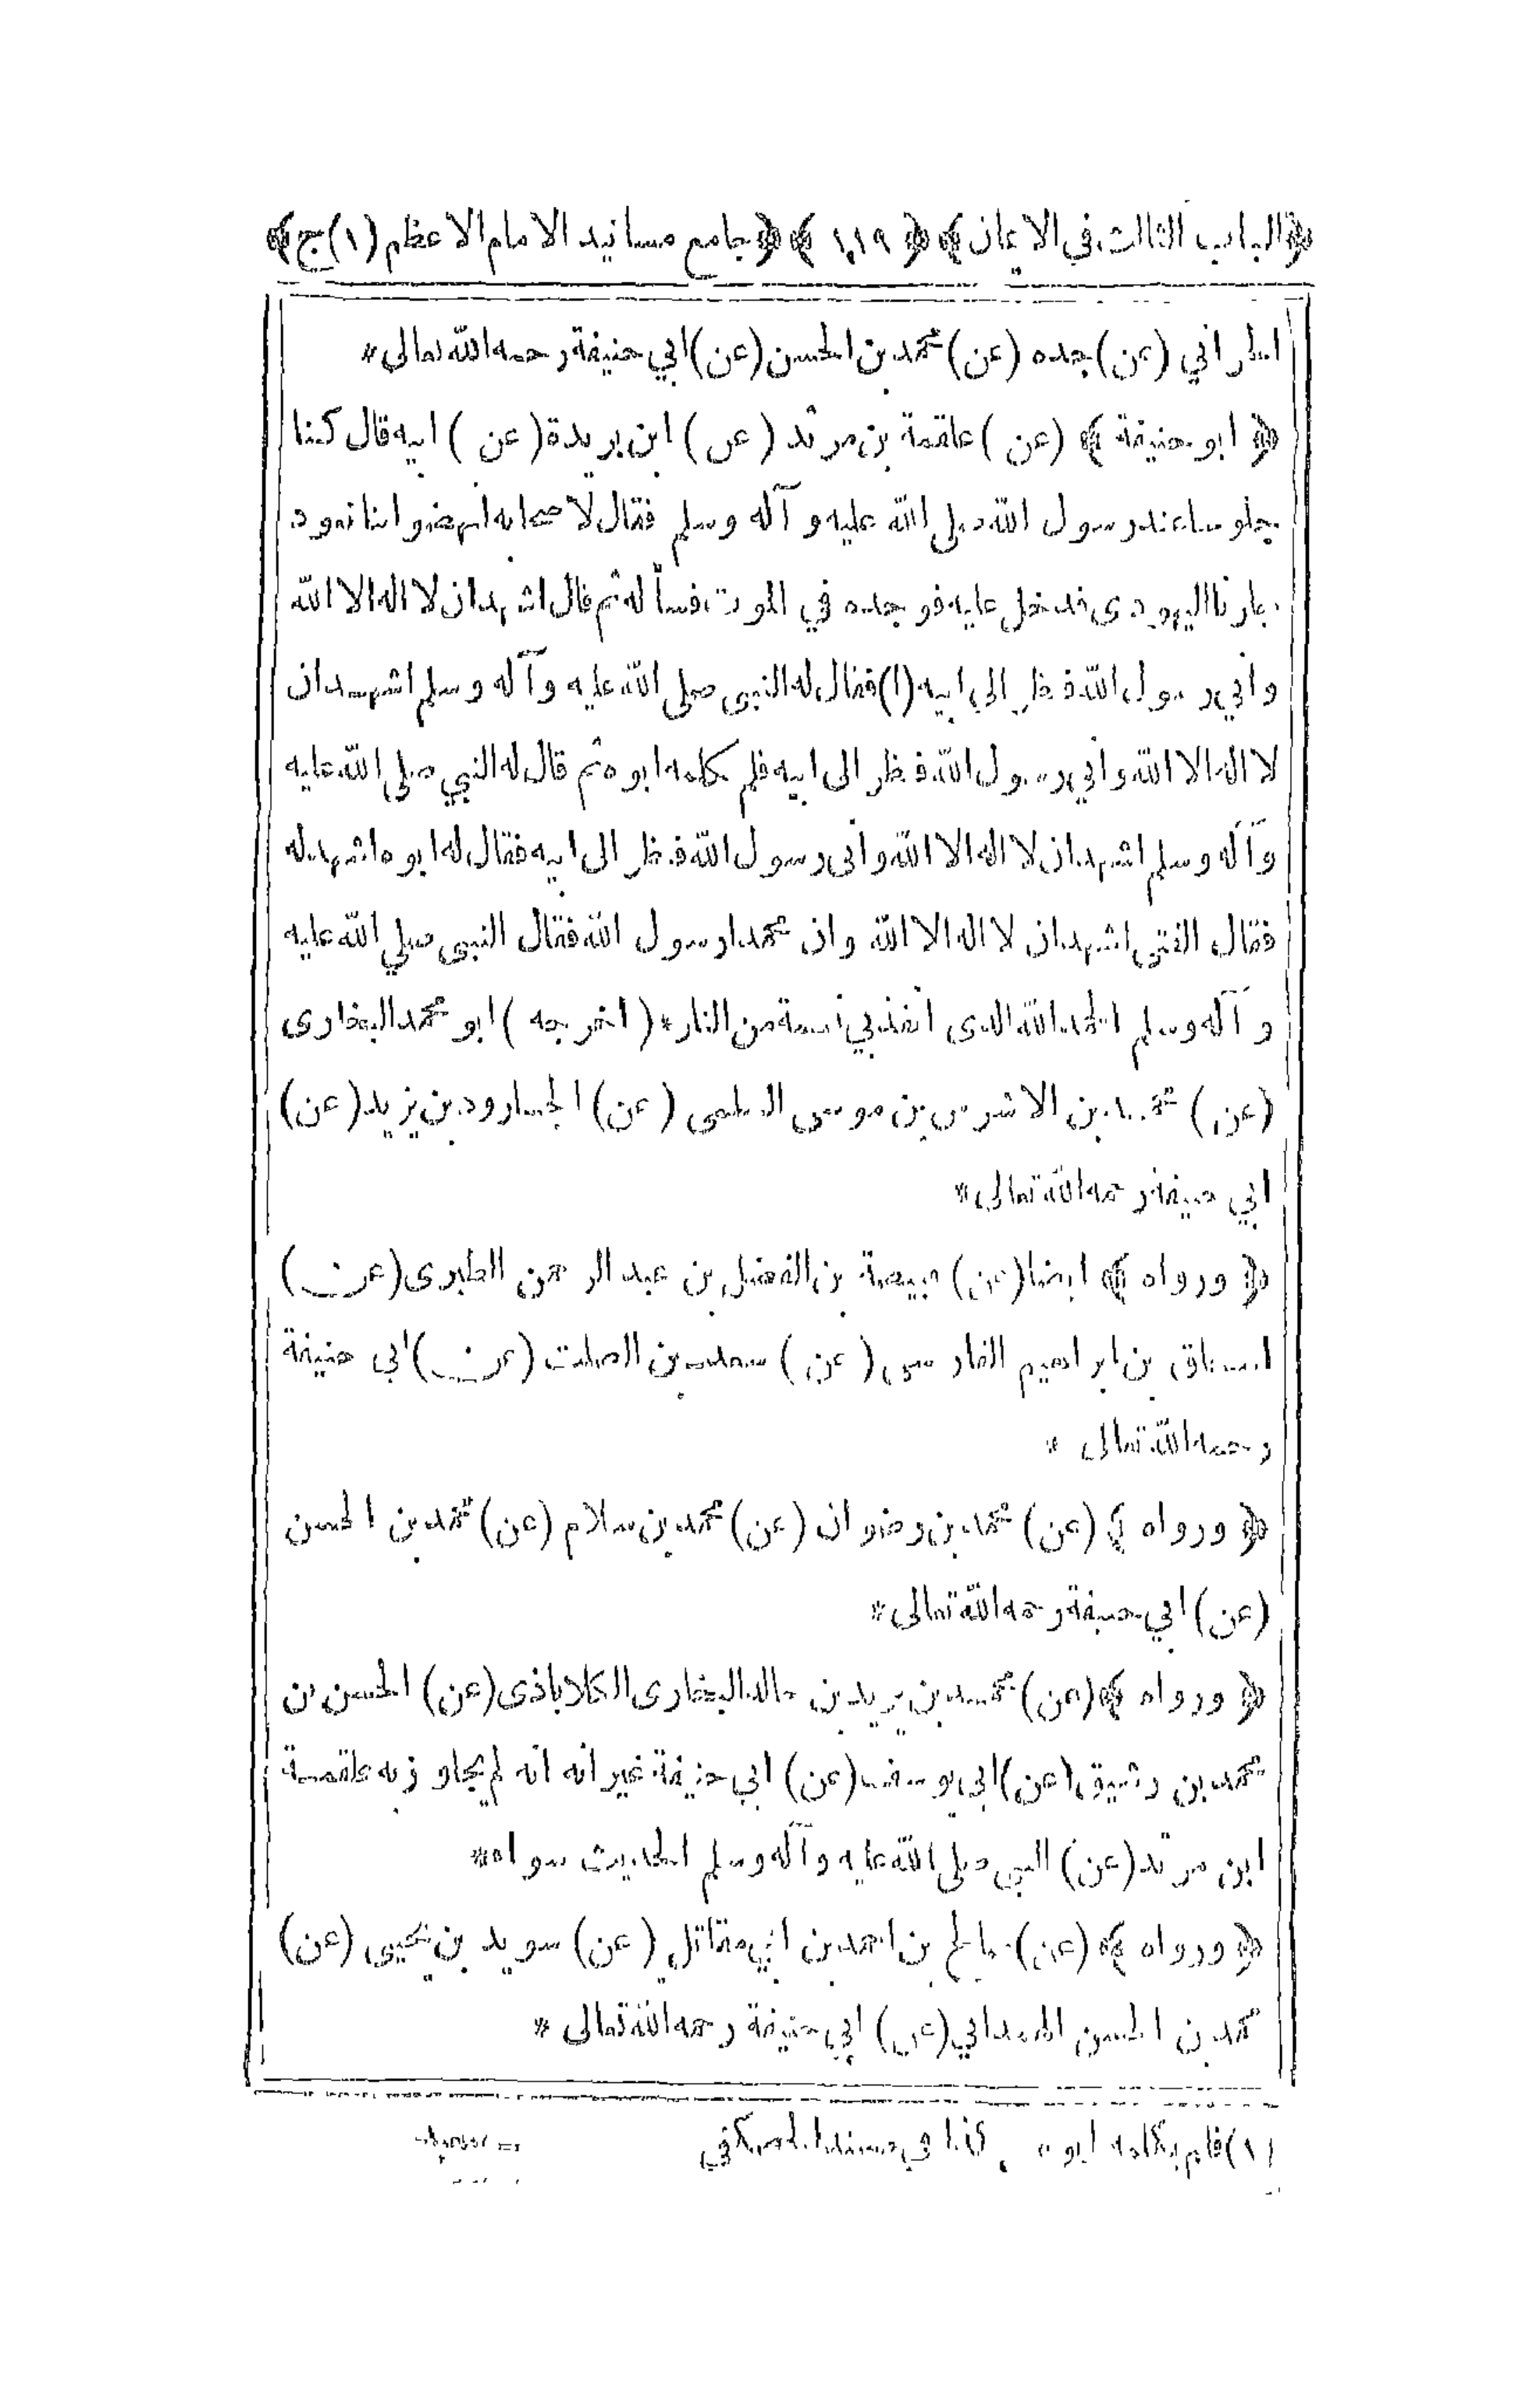 ﴿الباب الثالث في الايمان﴾ ﴿١١٩﴾ ﴿جامع مسانيد الامام الاعظم (١)ج﴾
(عن) جده (عن) محمد بن الحسن (عن) ابي حنيفة رحمه الله تعالى*
﴿ ابو حنيفة ﴾ (عن) علقمة بن مرثد (عن) ابن بريدة (عن) ابيه قال كنا
جلوسا عند رسول الله صلى الله عليه وآله وسلم فقال لاصحابه انهضوا بنا نعود
جارنا اليهودى فدخل عليه فوجده في الموت فسأله ثم قال اشهد ان لا اله الا الله
وأني رسول الله فنظر الى ابيه (١) فقال له النبي صلى الله عليه وآله وسلم اشهد ان
لا اله الا الله وأني رسول الله فنظر الى ابيه فلم يكلمه ابوه ثم قال له النبي صلى الله عليه
وآله وسلم اشهد ان لا اله الا الله وأنى رسول الله فنظر الى ابيه فقال له ابوه اشهد له
فقال الفتى اشهد ان لا اله الا الله وان محمدا رسول الله فقال النبى صلي الله عليه
وآله وسلم الحمد لله الذى انقذ بي نسمة من النار* (اخرجه) ابو محمد البخارى
(عن) محمد بن الاشرس بن موسى السلمى (عن) الجارود بن يزيد (عن)
ابي حنيفة رحمه الله تعالى*
﴿ ورواه ﴾ ايضا (عن) بن الفضل بن عبد الرحمن الطبرى (عن)
اسحاق بن ابراهيم الفارسى (عن) سعد بن الصلت (عن) ابى حنيفة
رحمه الله تعالى *
﴿ ورواه ﴾ (عن) محمد بن رضوان (عن) محمد بن سلام (عن) محمد بن الحسن
(عن) ابي حنيفة رحمه الله تعالى*
﴿ ورواه ﴾ (عن) محمد بن يزيد بن خالد البخارى الكلاباذى (عن) الحسن بن
محمد بن رشيق (عن) ابى يوسف (عن) ابي حنيفة غير انه انه لم يجاوز به علقمة
ابن مرثد (عن) النبي صلى الله عليه وآله وسلم الحديث سواء*
﴿ ورواه ﴾ (عن) صالح بن احمد بن ابي مقاتل (عن) سويد بن يحيى (عن)
محمد بن الحسن الهمداني (عن) ابي حنيفة رحمه الله تعالى *
(١) فلم يكلمه ابوه كذا في مسند الحصكفي